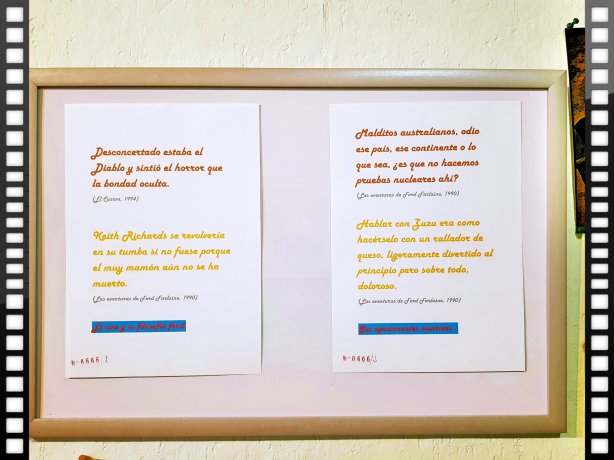 Desconcertado estaba el
Diablo y sintió el horror que
la bondad oculta.
(El Cuervo, 1994)
Keith Richards se revolvería
en su tumba si no fuese porque
el muy mamón aún no se ha
muerto.
(Las aventuras de Ford Fairlaine, 1990)
El cine y su filosofía fácil
H-0666/1
Malditos australianos, odio
ese país, ese continente o lo
que sea, ¿es que no hacemos
pruebas nucleares ahí?
(Las aventuras de Ford Fairlaine, 1990)
Hablar con Zuzu era como
hacérselo con un rallador de
queso, ligeramente divertido al
principio pero sobre todo,
doloroso.
(Las aventuras de Ford Fairlaine, 1990)
Sus apasionantes mentiras.
H-0666/2